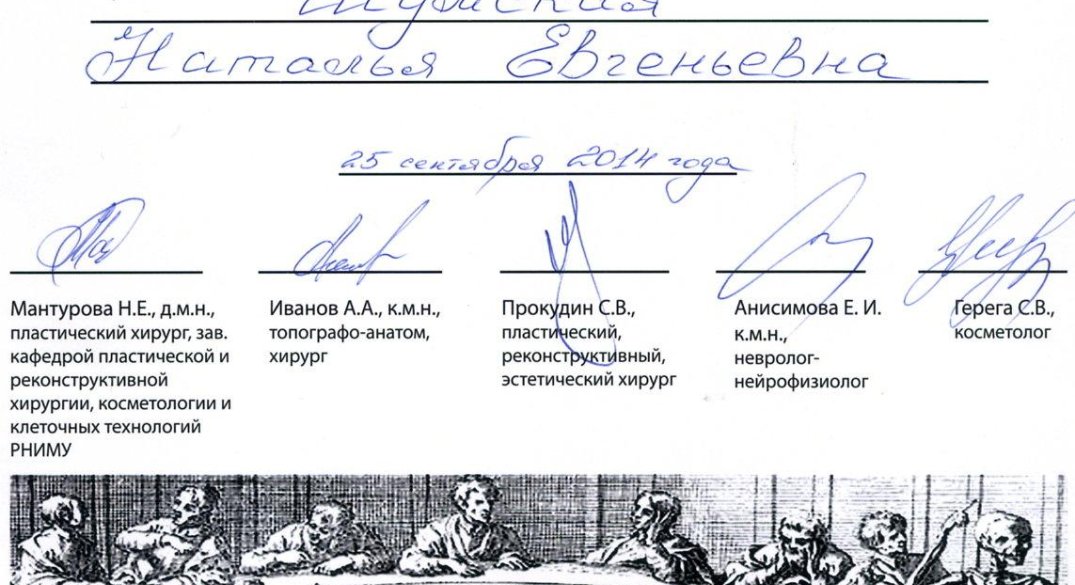 Наталья Евгеньевна
25 сентября 2014 года
Мантурова Н.Е., д.м.н.,
пластический хирург, зав.
кафедрой пластической и
реконструктивной
хирургии, косметологии и
клеточных технологий
РНИМУ
Иванов А.А., к.м.н.,
топографо-анатом,
хирург
Прокудин С.В.,
пластический,
реконструктивный,
эстетический хирург
Анисимова Е. И.
к.м.н.,
невролог-
нейрофизиолог
Герега С.В.,
косметолог